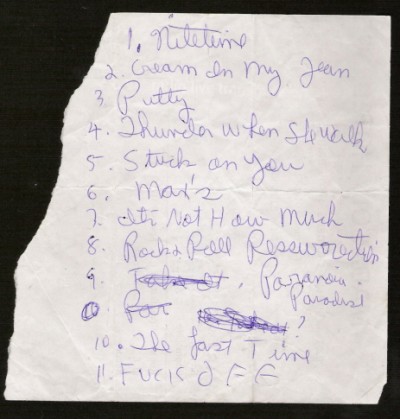 1. Nitetime
2. Cream In My Jean
3 Putty
4. Thunder When She walk
5. Stuck on You
6. Max's
7. It's Not How Much
8. Rock & Roll Resswrection
9. Paranoia
Paradise
10 Par ?
10. The Last Time
11. FUCK OFF